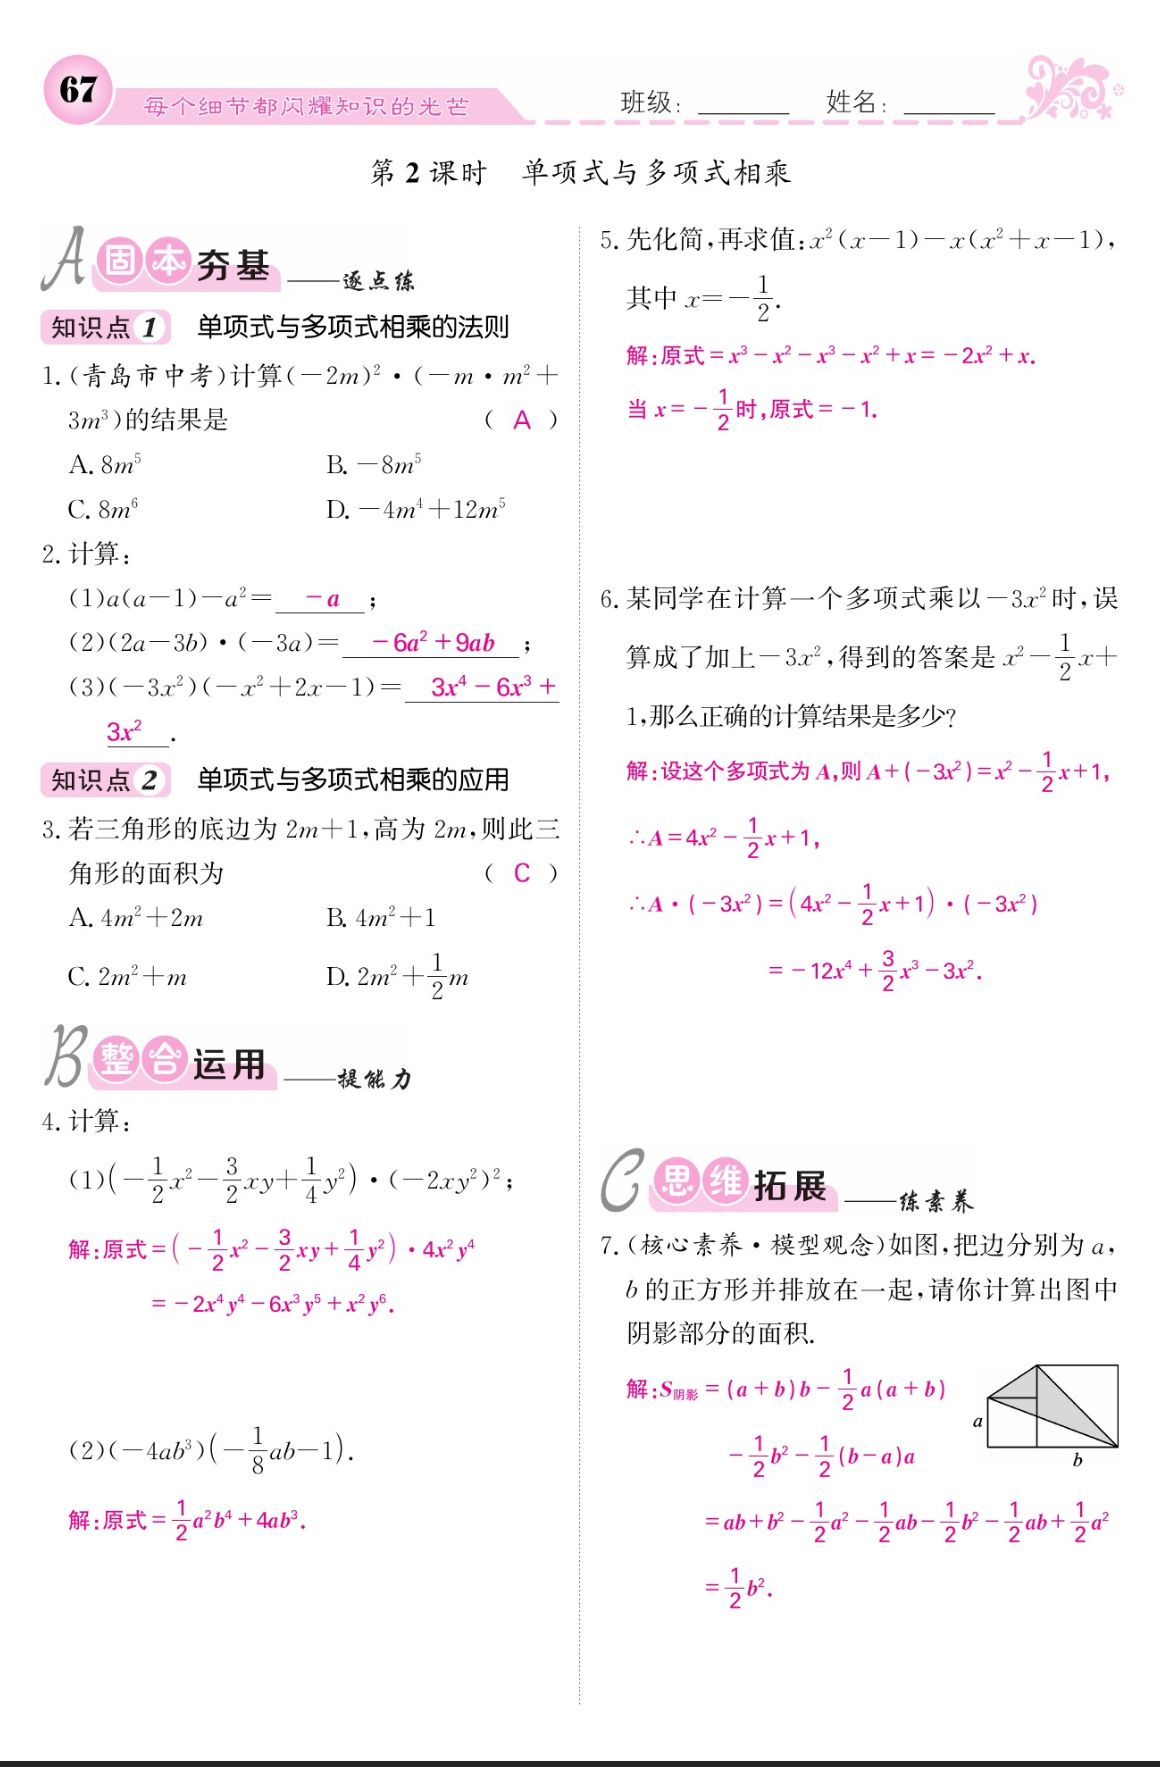 67
每个细节都闪耀知识的光芒 班级：______ 姓名：______
第2课时 单项式与多项式相乘
A 固本夯基 ——逐点练
知识点1 单项式与多项式相乘的法则
1. (青岛市中考)计算(－2m)²·(－m·m²＋
3m³)的结果是 （ A ）
A. 8m⁵ B. －8m⁵
C. 8m⁶ D. －4m⁴＋12m⁵
2. 计算：
(1)a(a－1)－a²＝ －a ；
(2)(2a－3b)·(－3a)＝ －6a²＋9ab ；
(3)(－3x²)(－x²＋2x－1)＝ 3x⁴－6x³＋
3x² .
知识点2 单项式与多项式相乘的应用
3. 若三角形的底边为 2m＋1,高为 2m,则此三
角形的面积为 （ C ）
A. 4m²＋2m B. 4m²＋1
C. 2m²＋m D. 2m²＋1/2m
B 整合运用 ——提能力
4. 计算：
(1)(－1/2x²－3/2xy＋1/4y²)·(－2xy²)²；
解:原式＝(－1/2x²－3/2xy＋1/4y²)·4x²y⁴
＝－2x⁴y⁴－6x³y⁵＋x²y⁶.
(2)(－4ab³)(－1/8ab－1).
解:原式＝1/2a²b⁴＋4ab³.
5. 先化简,再求值:x²(x－1)－x(x²＋x－1),
其中 x＝－1/2.
解:原式＝x³－x²－x³－x²＋x＝－2x²＋x.
当 x＝－1/2时,原式＝－1.
6. 某同学在计算一个多项式乘以－3x²时,误
算成了加上－3x²,得到的答案是 x²－1/2x＋
1,那么正确的计算结果是多少?
解:设这个多项式为 A,则 A＋(－3x²)＝x²－1/2x＋1,
∴A＝4x²－1/2x＋1,
∴A·(－3x²)＝(4x²－1/2x＋1)·(－3x²)
＝－12x⁴＋3/2x³－3x².
C 思维拓展 ——练素养
7. (核心素养·模型观念)如图,把边分别为 a,
b 的正方形并排放在一起,请你计算出图中
阴影部分的面积.
解:S阴影＝(a＋b)b－1/2a(a＋b)
－1/2b²－1/2(b－a)a
＝ab＋b²－1/2a²－1/2ab－1/2b²－1/2ab＋1/2a²
＝1/2b².
a
b